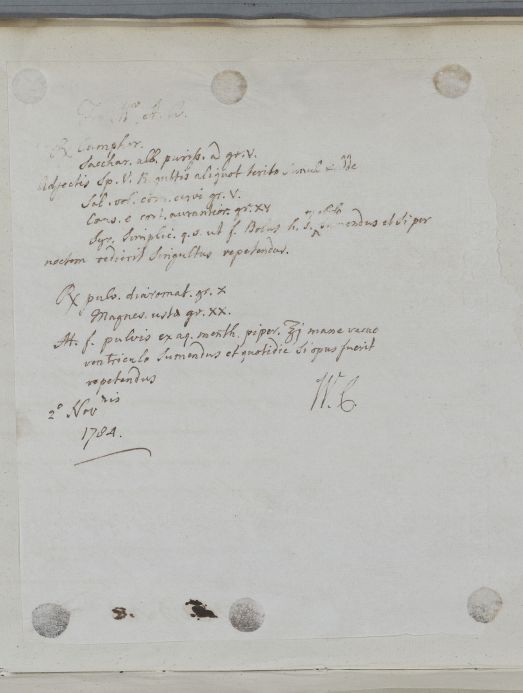 Mr. A. R.
℞ Camphor.
Sacchar. alb. puriss. a gr. V.
Adjectis Sp. V. R. guttis aliquot terito simul & adde
Sal. vol. corn. cervi gr. V.
Cons. e cort. aurantior. gr. XV
Syr. Simplic. q. s. ut f. Bolus h. s. sumendus et si per
noctem redierit Singultus repetendus.
℞ pulv. diaromat. gr. X
Magnes. ustæ gr. XX.
M. f. pulvis ex aq. menth. piper. ℥j mane vacuo
ventriculo Sumendus et quotidie si opus fuerit
repetendus
2º Novris
1784.
W. C.